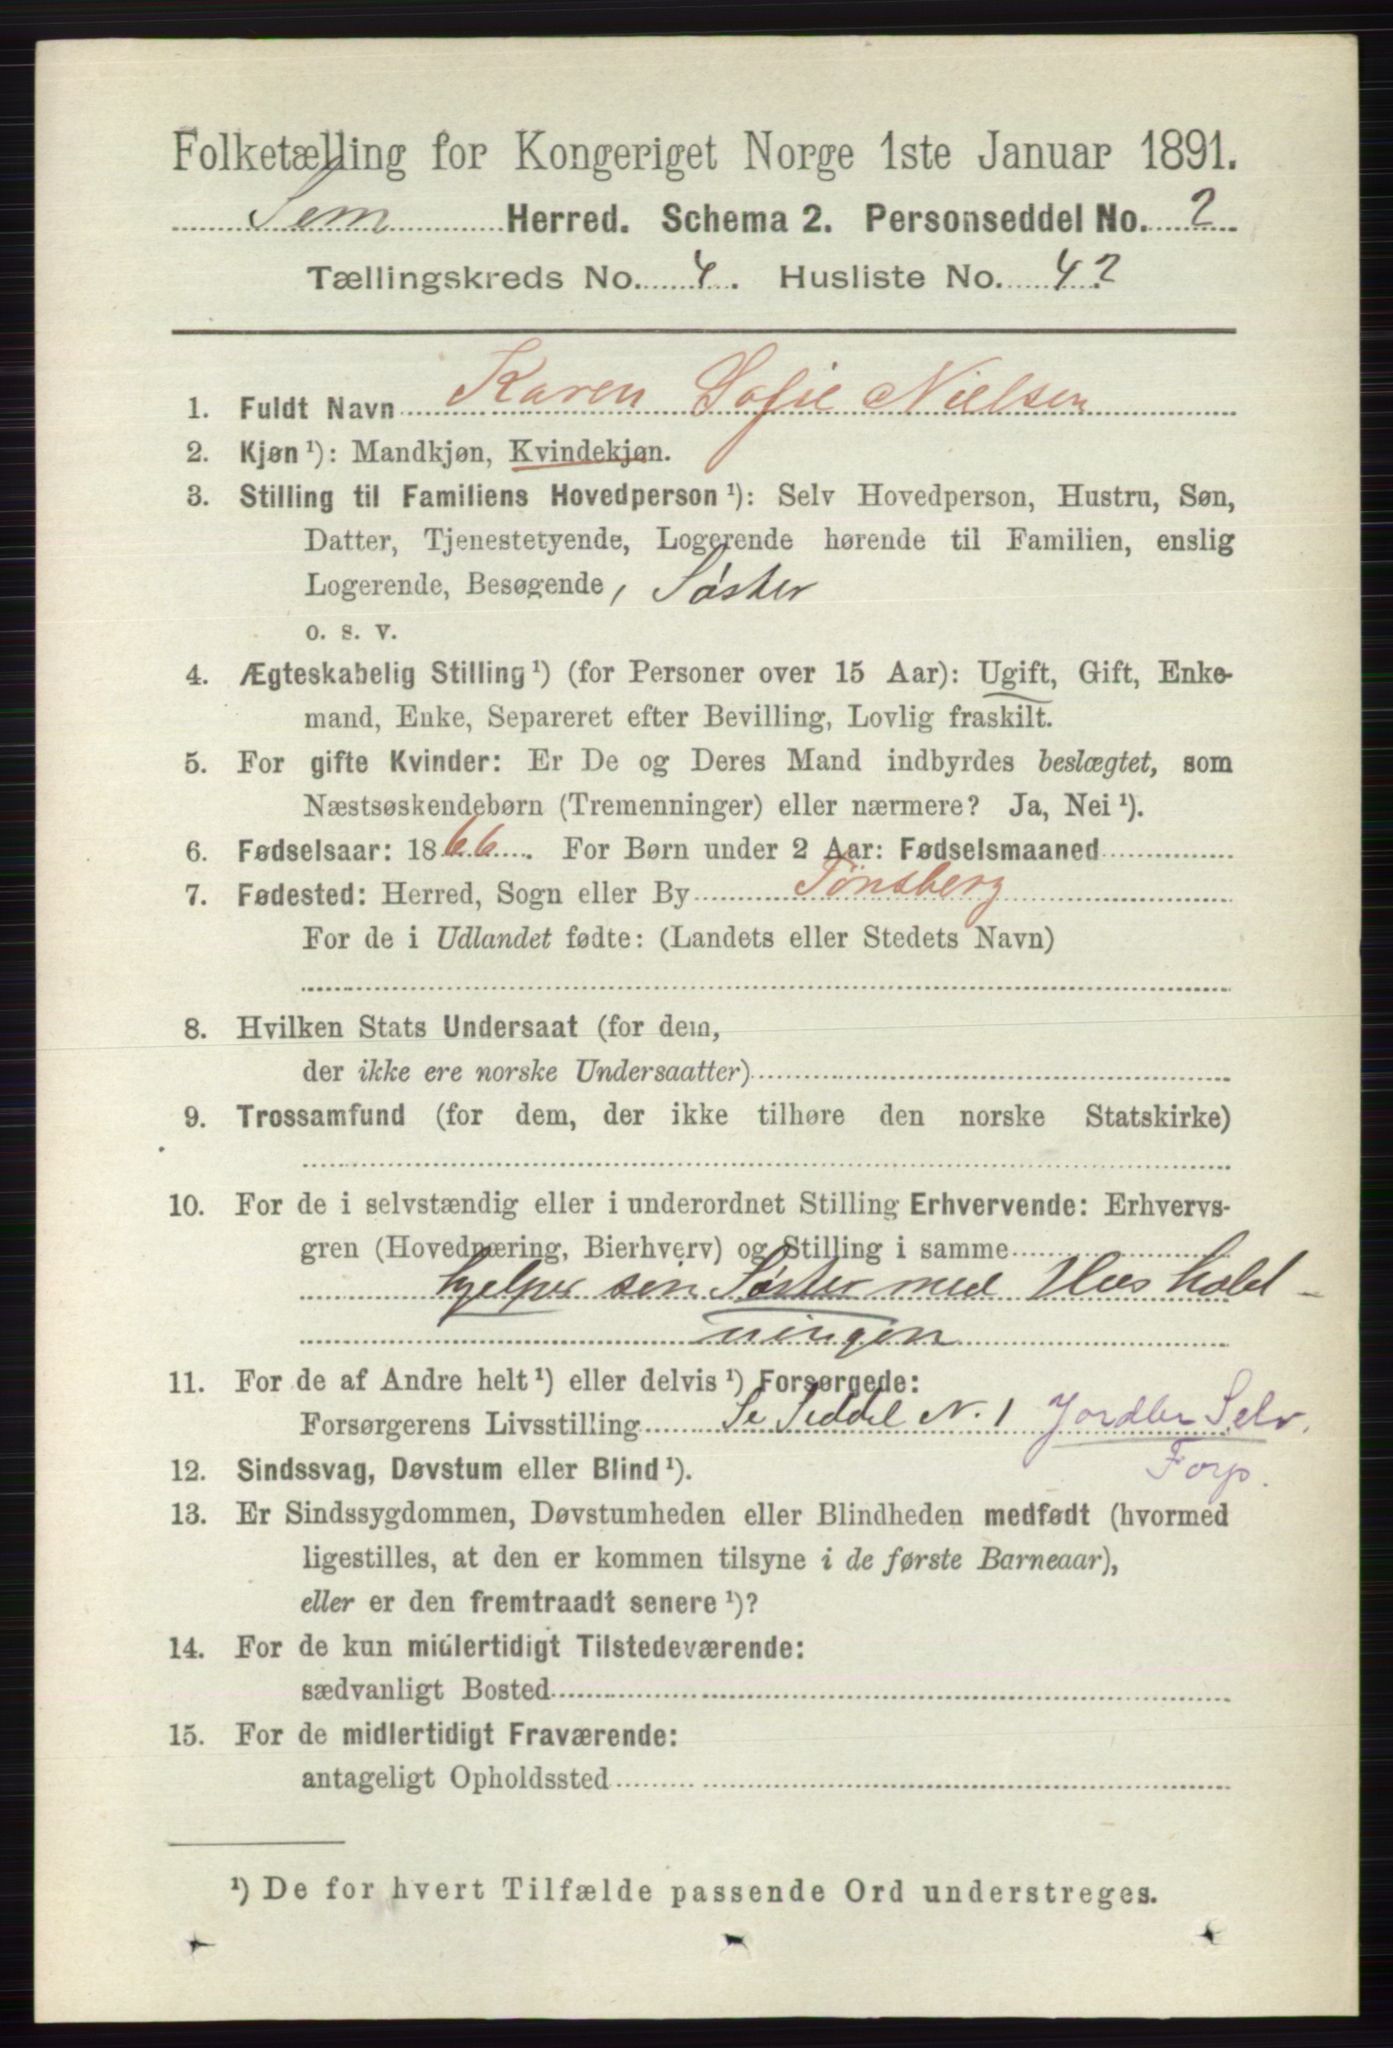 Folketælling for Kongeriget Norge 1ste Januar 1891.
Sem Herred. Schema 2. Personseddel No. 2
Tællingskreds No. 4. Husliste No. 42
1. Fuldt Navn Karen Sofie Nielsen
2. Kjøn ¹): Mandkjøn, Kvindekjøn.
3. Stilling til Familiens Hovedperson ¹): Selv Hovedperson, Hustru, Søn,
Datter, Tjenestetyende, Logerende hørende til Familien, enslig
Logerende, Besøgende, Søster
o. s. v.
4. Ægteskabelig Stilling ¹) (for Personer over 15 Aar): Ugift, Gift, Enke-
mand, Enke, Separeret efter Bevilling, Lovlig fraskilt.
5. For gifte Kvinder: Er De og Deres Mand indbyrdes beslægtet, som
Næstsøskendebørn (Tremenninger) eller nærmere? Ja, Nei ¹).
6. Fødselsaar: 1866. For Børn under 2 Aar: Fødselsmaaned
7. Fødested: Herred, Sogn eller By Tønsberg
For de i Udlandet fødte: (Landets eller Stedets Navn)
8. Hvilken Stats Undersaat (for dem,
der ikke ere norske Undersaatter)
9. Trossamfund (for dem, der ikke tilhøre den norske Statskirke)
10. For de i selvstændig eller i underordnet Stilling Erhvervende: Erhvervs-
gren (Hovednæring, Bierhverv) og Stilling i samme
hjelper sin Søster med Hushold-
ningen
11. For de af Andre helt ¹) eller delvis ¹) Forsørgede:
Forsørgerens Livsstilling Se Seddel N. 1 Jordbr Selv.
Forp.
12. Sindssvag, Døvstum eller Blind ¹).
13. Er Sindssygdommen, Døvstumheden eller Blindheden medfødt (hvormed
ligestilles, at den er kommen tilsyne i de første Barneaar),
eller er den fremtraadt senere ¹)?
14. For de kun midlertidigt Tilstedeværende:
sædvanligt Bosted
15. For de midlertidigt Fraværende:
antageligt Opholdssted
¹) De for hvert Tilfælde passende Ord understreges.